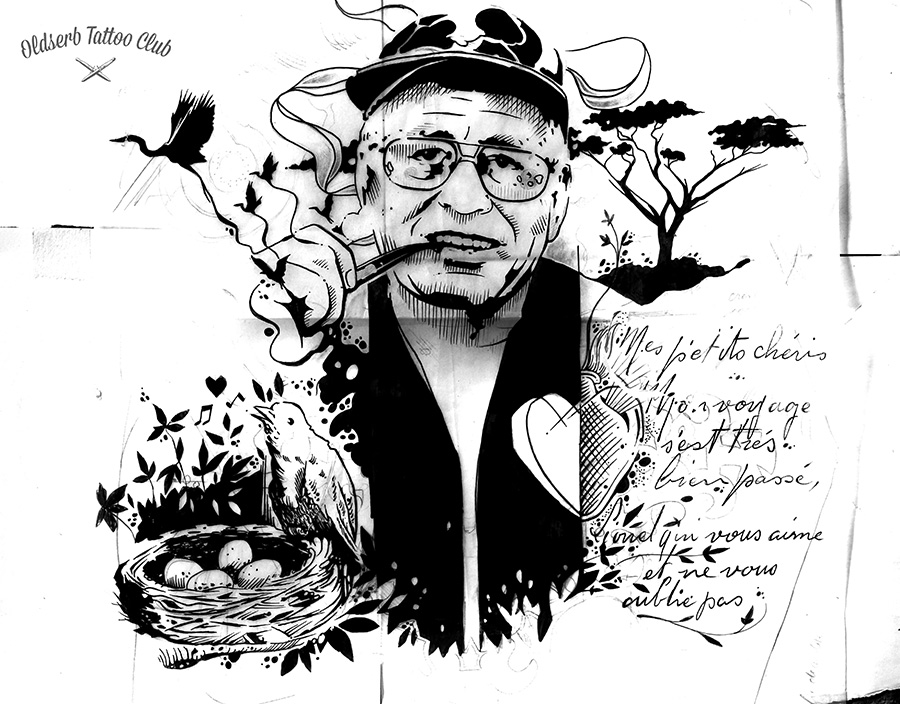 Oldserb Tattoo Club
Mes petits chéris
Mon voyage
s'est trés
bien passé,
qui vous aime
et ne vous
oublie pas